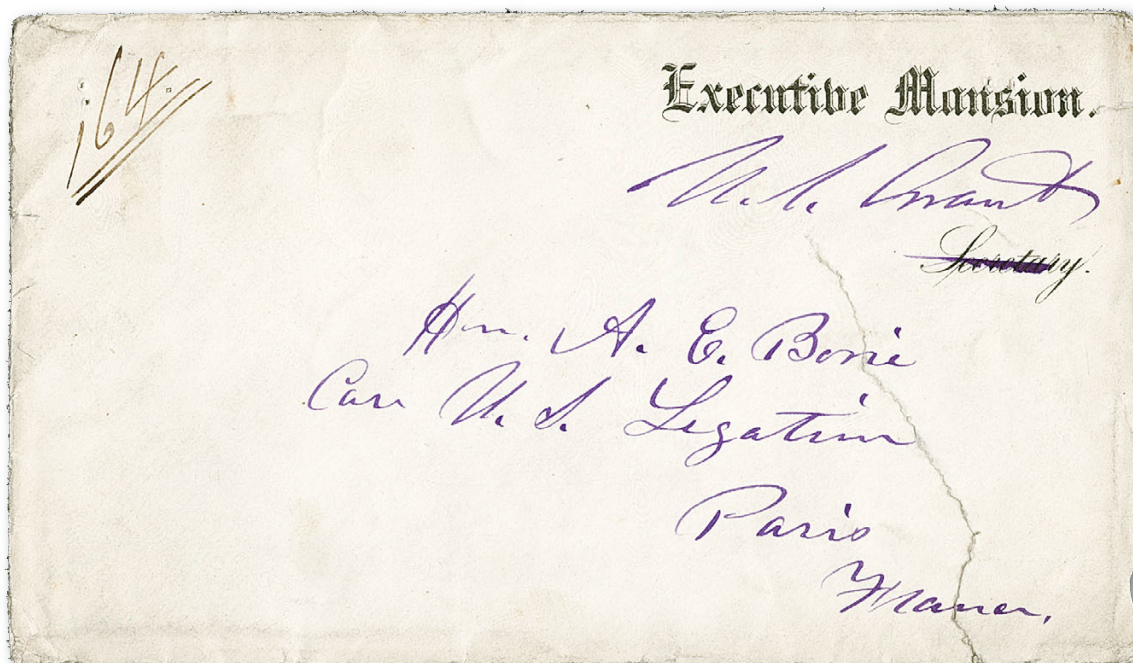 164.
Executive Mansion.
U.S. Grant
Secretary.
Hon. A. E. Borie
Care U. S. Legation
Paris
France.